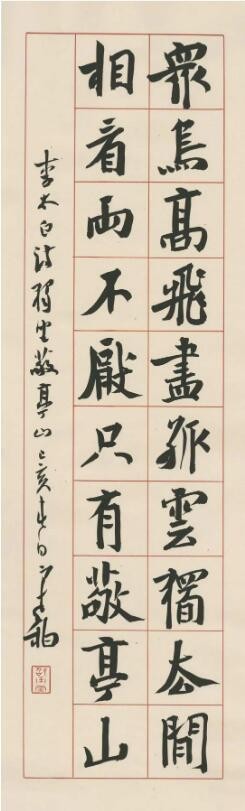 衆鳥高飛盡孤雲獨去閒
相看兩不厭只有敬亭山
李太白詩獨坐敬亭山己亥春日